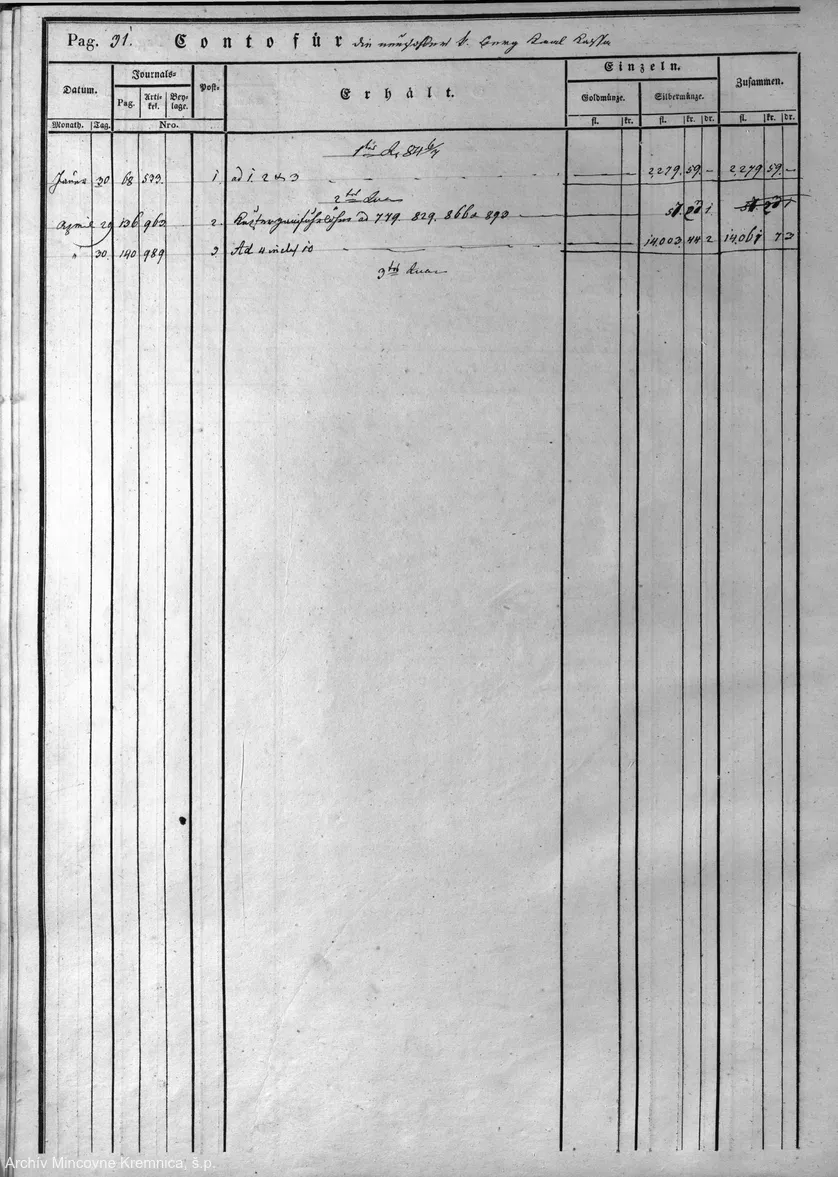 Pag. 31. Conto für die
Datum. Journals= Post. Erhält. Einzeln. Zusammen.
Pag. Arti=kel. Bey=lage. Goldmünze. Silbermünze.
Monath. Tag. Nro. fl. kr. fl. kr. dr. fl. kr. dr.
1tes 846/7
Jäner 30 68 533 1. ad 1. 2 & 3 2,279. 59. – 2,279 59. –
2tes
April 29 136 963 2. ad 779. 829. 866 & 893 1
" 30. 140 989 3 Ad 4 incl 10 14,003. 44 2 14,061 7 3
3tes
Archív Mincovne Kremnica, š.p.